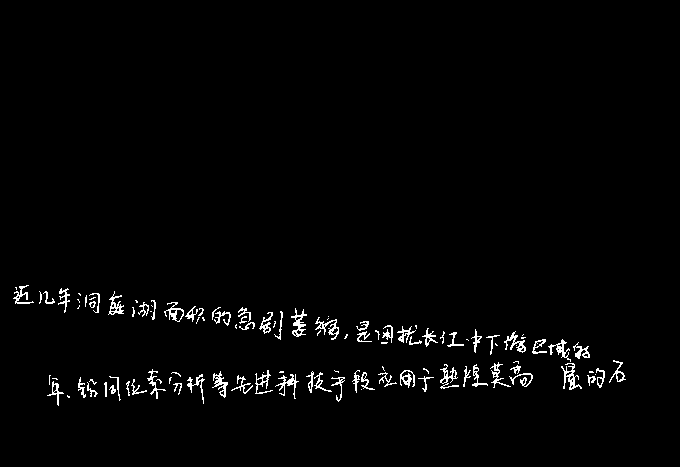 近几年洞庭湖面积的急剧萎缩,是困扰长江中下游区域的
年、铅同位素分析等先进科技手段应用于敦煌莫高 窟的石